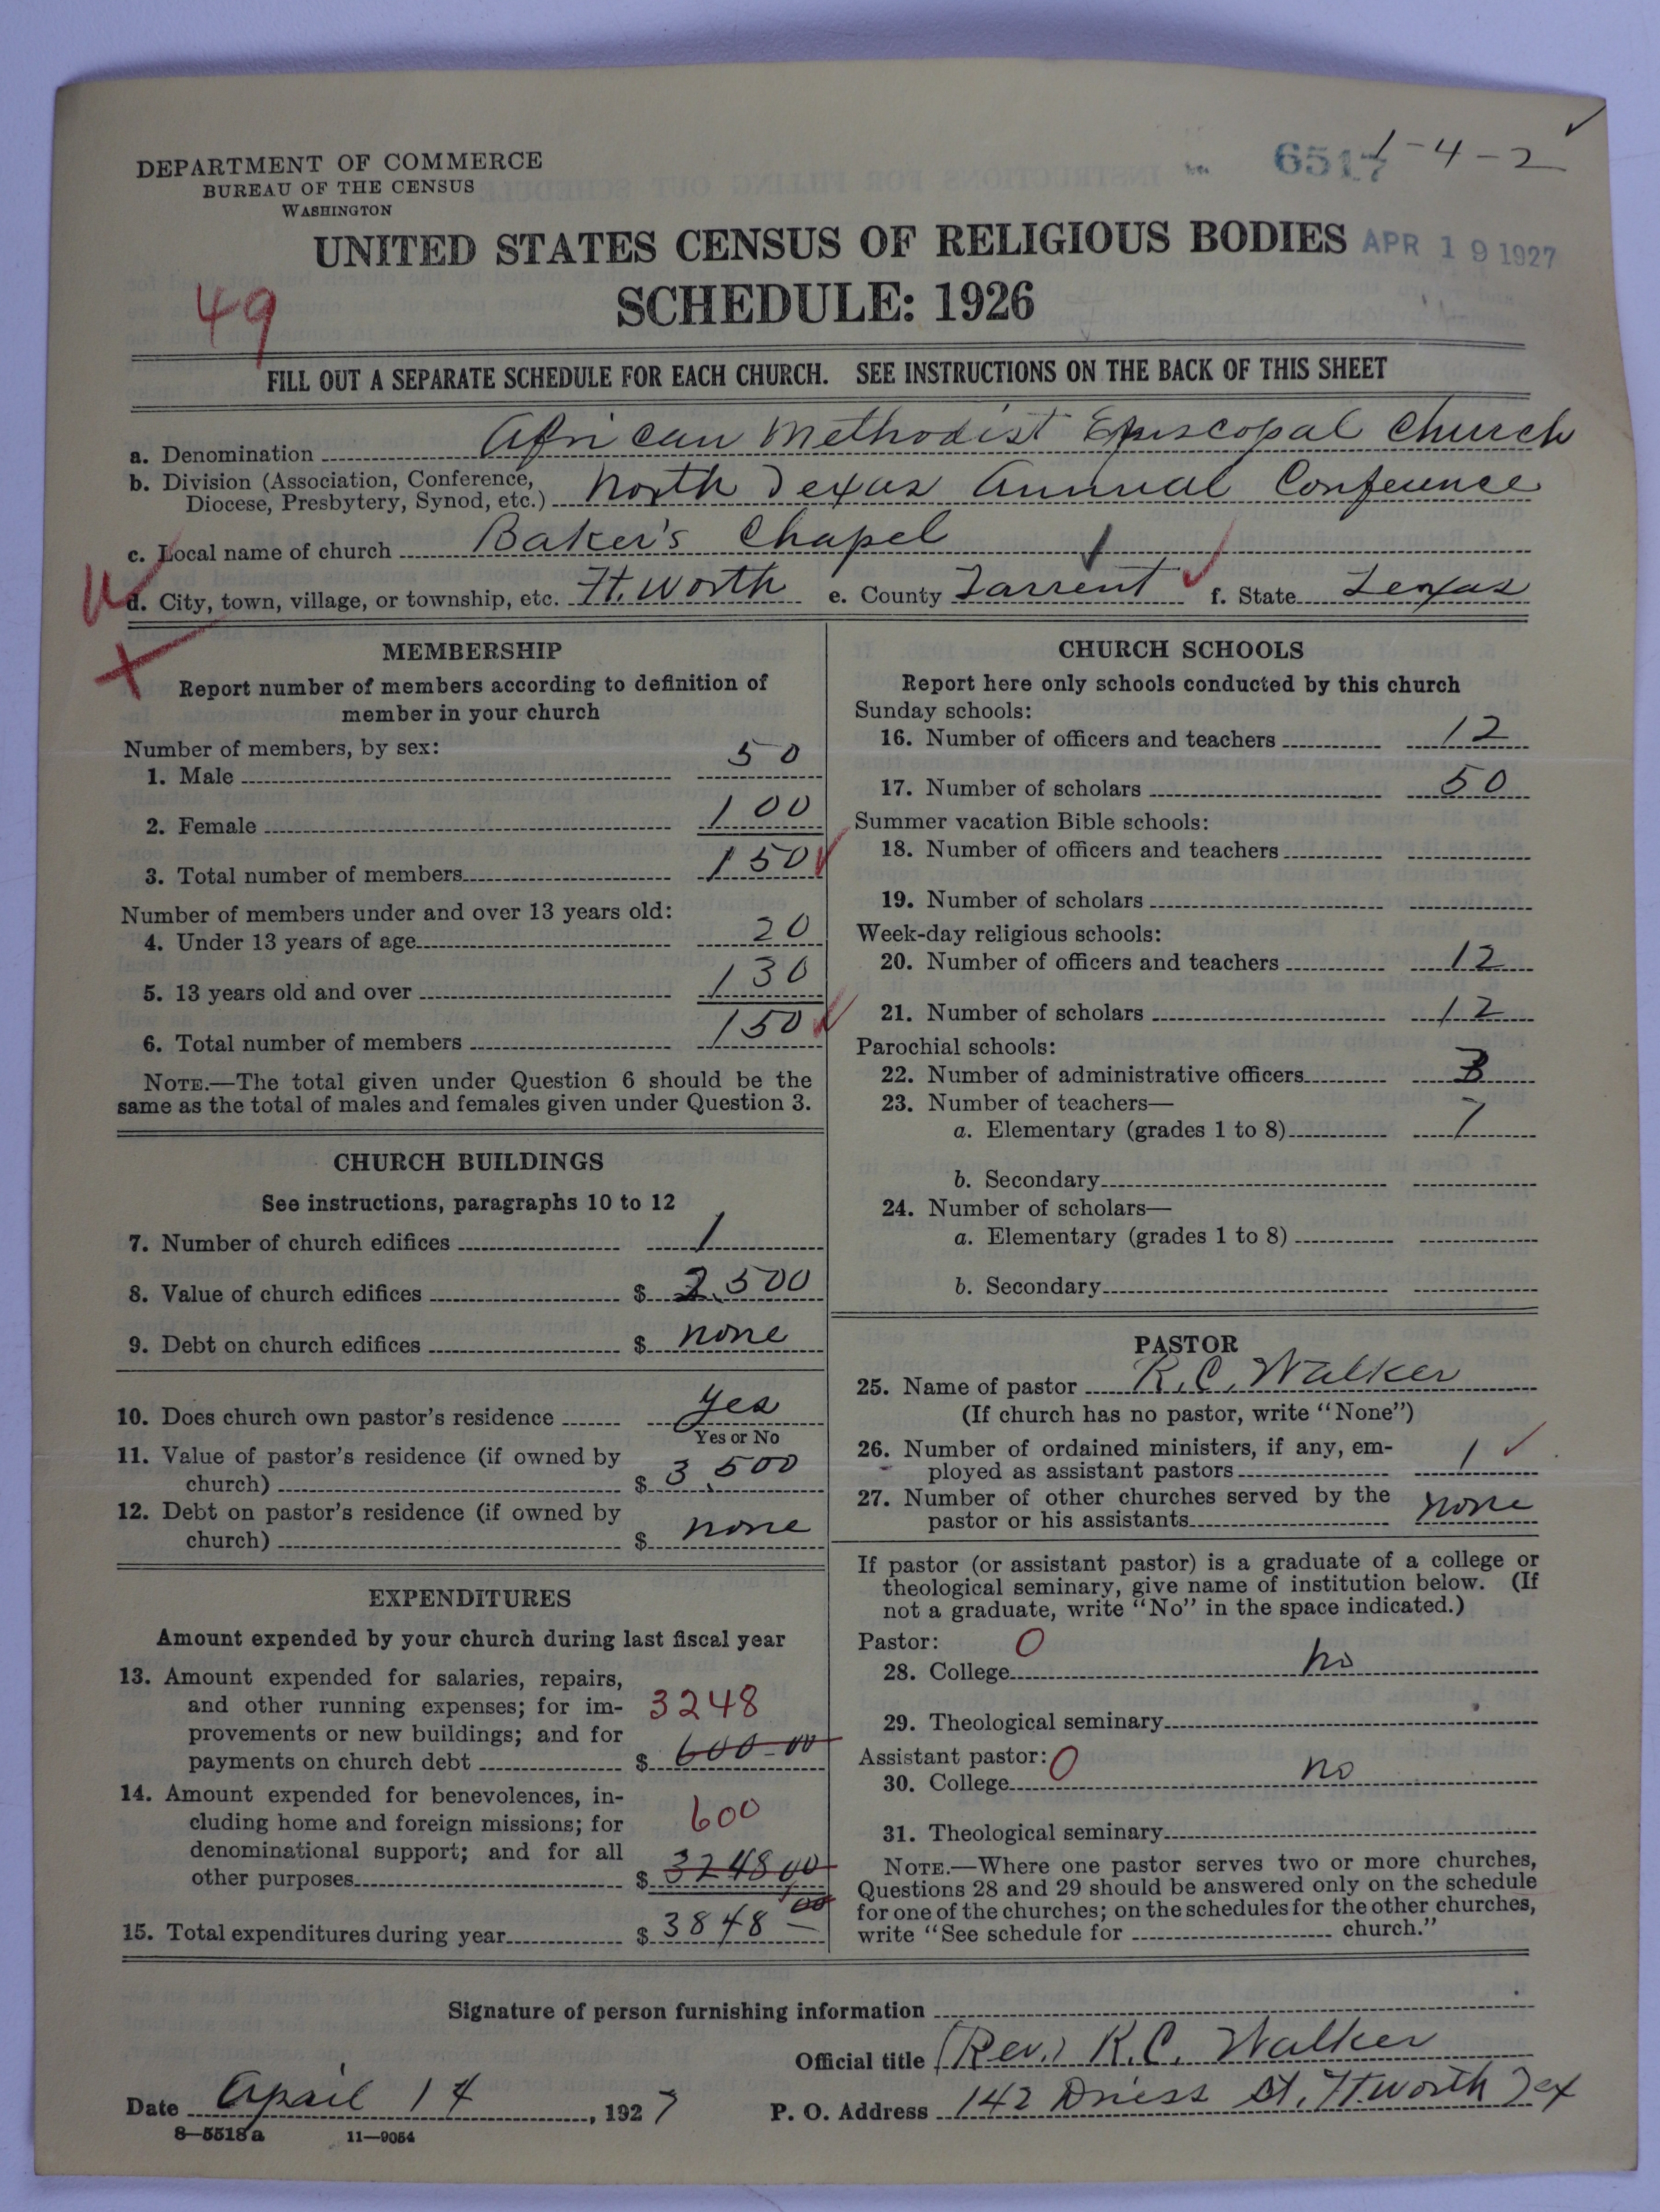 DEPARTMENT OF COMMERCE
BUREAU OF THE CENSUS
WASHINGTON
6517 1-4-2
UNITED STATES CENSUS OF RELIGIOUS BODIES APR 19 1927
SCHEDULE: 1926
49
FILL OUT A SEPARATE SCHEDULE FOR EACH CHURCH. SEE INSTRUCTIONS ON THE BACK OF THIS SHEET
a. Denomination African Methodist Episcopal Church
b. Division (Association, Conference,
Diocese, Presbytery, Synod, etc.) North Texas Annual Conference
c. Local name of church Baker's Chapel
d. City, town, village, or township, etc. Ft. Worth e. County Tarrent f. State Texas
MEMBERSHIP
Report number of members according to definition of
member in your church
Number of members, by sex:
1. Male 50
2. Female 100
3. Total number of members 150
Number of members under and over 13 years old:
4. Under 13 years of age 20
5. 13 years old and over 130
6. Total number of members 150
NOTE.—The total given under Question 6 should be the
same as the total of males and females given under Question 3.
CHURCH BUILDINGS
See instructions, paragraphs 10 to 12
7. Number of church edifices 1
8. Value of church edifices $ 2,500
9. Debt on church edifices $ none
10. Does church own pastor's residence yes
Yes or No
11. Value of pastor's residence (if owned by
church) $ 3,500
12. Debt on pastor's residence (if owned by
church) $ none
EXPENDITURES
Amount expended by your church during last fiscal year
13. Amount expended for salaries, repairs,
and other running expenses; for im- 3248
provements or new buildings; and for
payments on church debt $ 600-00
14. Amount expended for benevolences, in-
cluding home and foreign missions; for 600
denominational support; and for all
other purposes $ 3248 00
15. Total expenditures during year $ 3848 00
CHURCH SCHOOLS
Report here only schools conducted by this church
Sunday schools:
16. Number of officers and teachers 12
17. Number of scholars 50
Summer vacation Bible schools:
18. Number of officers and teachers
19. Number of scholars
Week-day religious schools:
20. Number of officers and teachers 12
21. Number of scholars 12
Parochial schools:
22. Number of administrative officers 3
23. Number of teachers—
a. Elementary (grades 1 to 8) 7
b. Secondary
24. Number of scholars—
a. Elementary (grades 1 to 8)
b. Secondary
PASTOR
25. Name of pastor R.C. Walker
(If church has no pastor, write "None")
26. Number of ordained ministers, if any, em-
ployed as assistant pastors 1
27. Number of other churches served by the
pastor or his assistants none
If pastor (or assistant pastor) is a graduate of a college or
theological seminary, give name of institution below. (If
not a graduate, write "No" in the space indicated.)
Pastor: 0
28. College no
29. Theological seminary
Assistant pastor: 0
30. College no
31. Theological seminary
NOTE.—Where one pastor serves two or more churches,
Questions 28 and 29 should be answered only on the schedule
for one of the churches; on the schedules for the other churches,
write "See schedule for church."
Signature of person furnishing information
Official title (Rev.) R.C. Walker
Date April 14, 1927 P. O. Address 142 Driess St, Ft. Worth Tex
8—5518a 11—9054